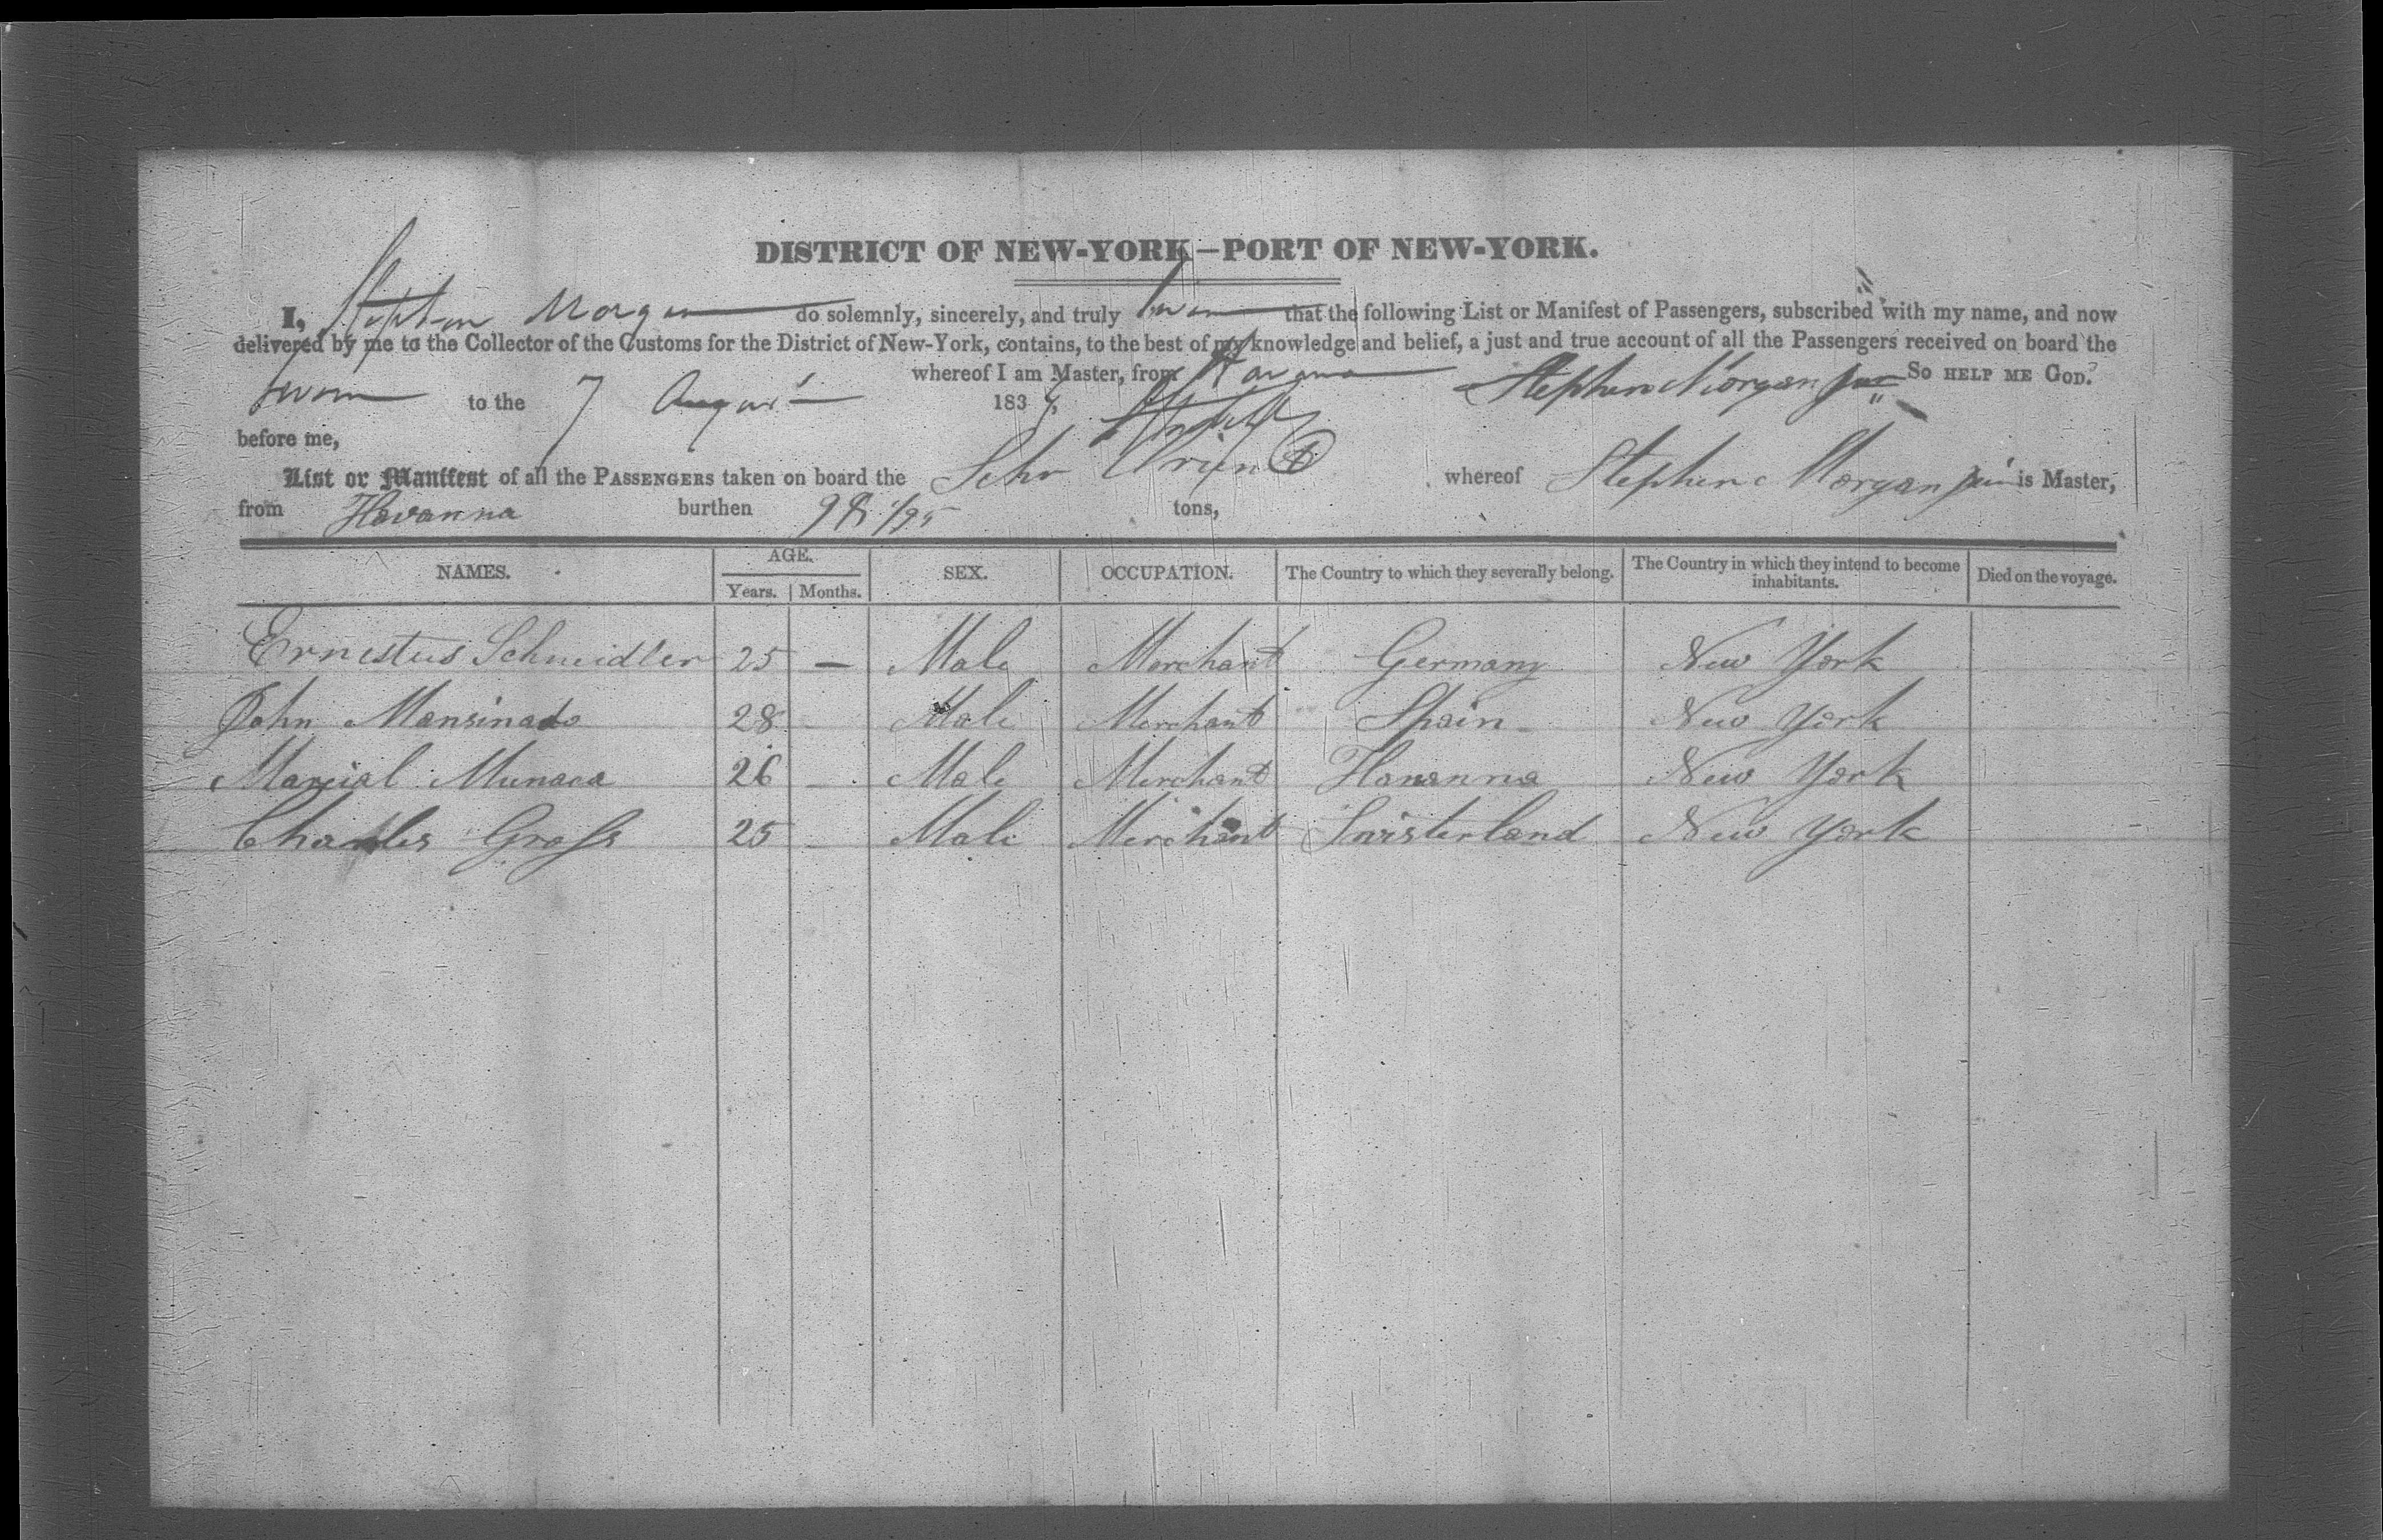 DISTRICT OF NEW-YORK—PORT OF NEW-YORK.
I, Stephen Morgan do solemnly, sincerely, and truly swear that the following List or Manifest of Passengers, subscribed with my name, and now
delivered by me to the Collector of the Customs for the District of New-York, contains, to the best of my knowledge and belief, a just and true account of all the Passengers received on board the
whereof I am Master, from Havana Stephen Morgan Jun So HELP ME GOD.
Sworn to the 7 August 183
before me,
List or Manifest of all the PASSENGERS taken on board the Schr Orient whereof Stephen Morgan jun is Master,
from Havanna burthen 98 1/95 tons,
NAMES. AGE. SEX. OCCUPATION. The Country to which they severally belong. The Country in which they intend to become inhabitants. Died on the voyage.
Years. Months.
Ernestus Schmidler 25 — Male Merchant Germany New York
John Mansinado 28 - Male Merchant Spain New York
Marcial Munaca 26 - Male Merchant Havanna New York
Charles Gross 25 - Male Merchant Swisterland New York